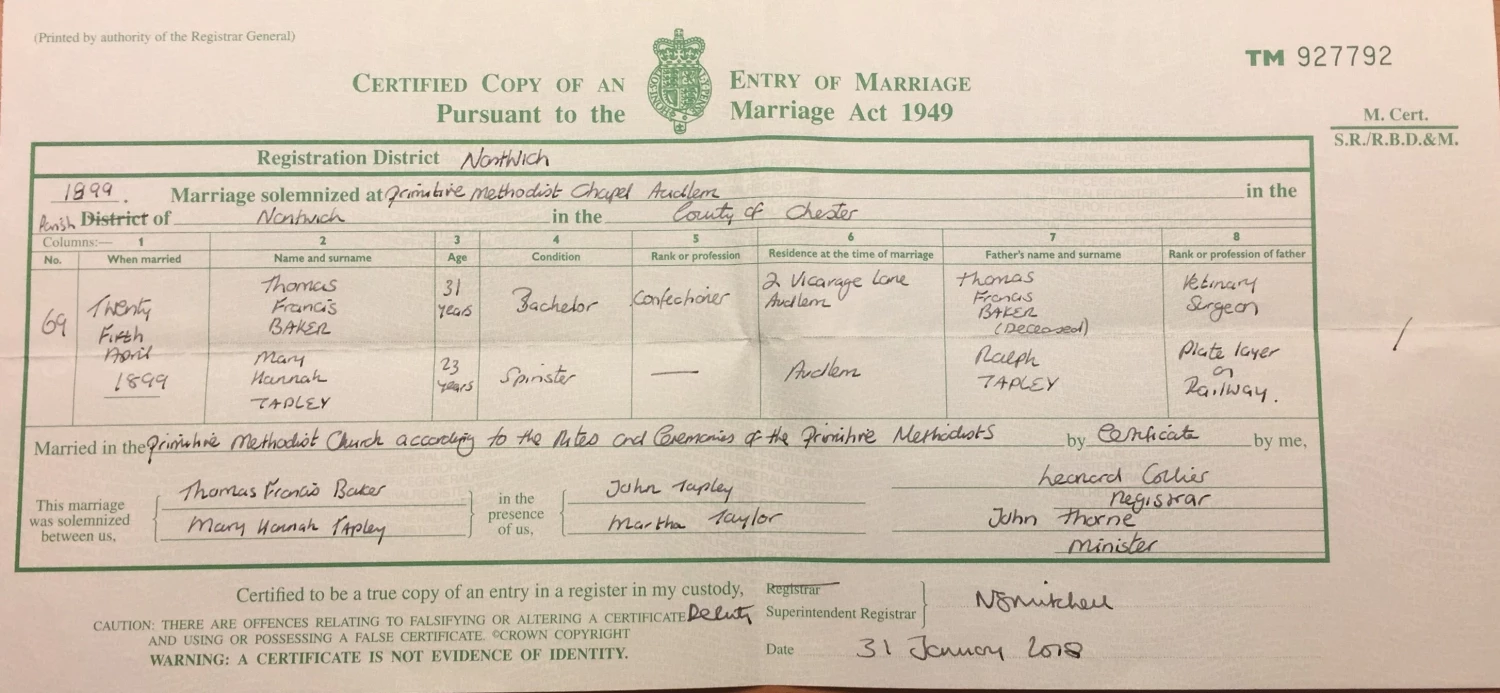 (Printed by authority of the Registrar General)
TM 927792
CERTIFIED COPY OF AN ENTRY OF MARRIAGE
Pursuant to the Marriage Act 1949
M. Cert.
S.R./R.B.D.&M.
Registration District Nantwich
1899. Marriage solemnized at Primitive Methodist Chapel Audlem in the
Parish District of Nantwich in the County of Chester
Columns:— 1 2 3 4 5 6 7 8
No. When married Name and surname Age Condition Rank or profession Residence at the time of marriage Father's name and surname Rank or profession of father
69
Twenty
Fifth
April
1899
Thomas
Francis
BAKER
31
years
Bachelor
Confectioner
2 Vicarage Lane
Audlem
Thomas
Francis
BAKER
(Deceased)
Vetinary
Surgeon
Mary
Hannah
TAPLEY
23
years
Spinster
—
Audlem
Ralph
TAPLEY
Plate layer
on
Railway.
Married in the Primitive Methodist Church according to the Rites and Ceremonies of the Primitive Methodists by Certificate by me,
This marriage
was solemnized
between us,
Thomas Francis Baker
Mary Hannah Tapley
in the
presence
of us,
John Tapley
Martha Taylor
Leonard Collier
Registrar
John Thorne
Minister
Certified to be a true copy of an entry in a register in my custody,
Registrar
Deputy Superintendent Registrar
NSmitchell
CAUTION: THERE ARE OFFENCES RELATING TO FALSIFYING OR ALTERING A CERTIFICATE
AND USING OR POSSESSING A FALSE CERTIFICATE. ©CROWN COPYRIGHT
WARNING: A CERTIFICATE IS NOT EVIDENCE OF IDENTITY.
Date 31 January 2018